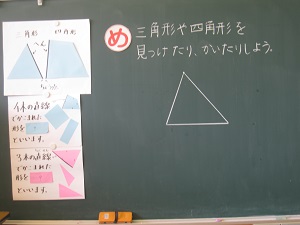 三角形
四角形
へん
ちょう点
4本の直線
でかこまれた
形を
といいます。
3本の直線
でかこまれた
形を
といいます。
め
三角形や四角形を
見つけたり、かいたりしよう。